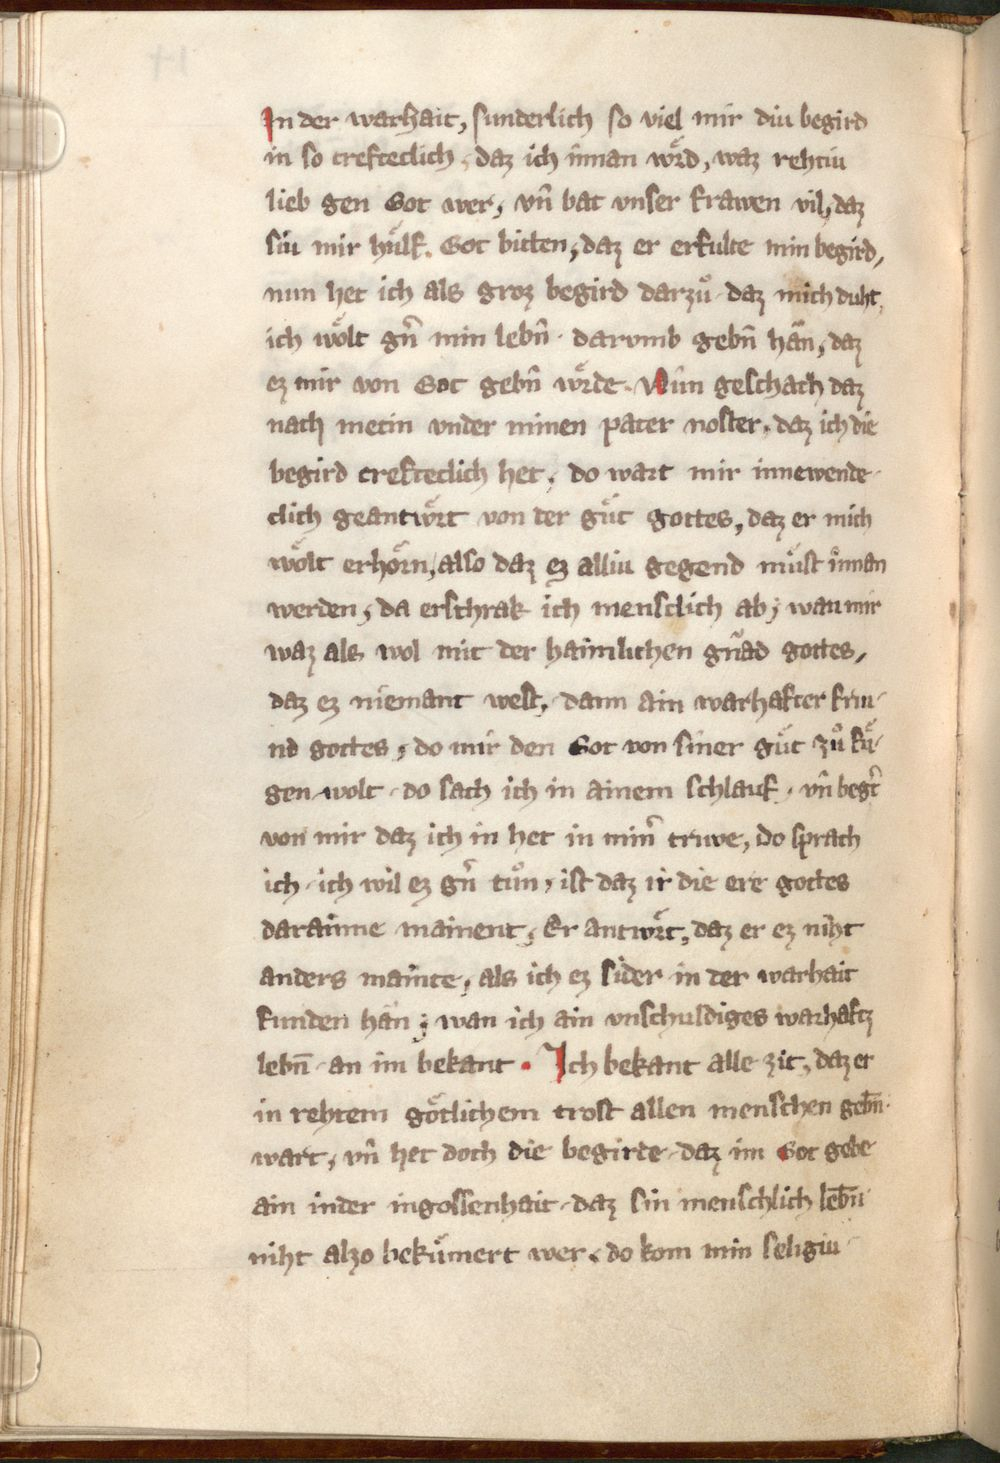 In der warhait, sunderlich so viel mir diu begird
in so crefteclich, daz ich innan wͤrd, waz rehtiu
lieb gen Got wer, vn̄ bat vnser frawen vil, daz
siu mir hͤulf. Got bitten, daz er erfulte min begird,
nun het ich als groz begird darzuͦ daz mich duht,
ich woͤlt gn̄ min lebn̄ darvmb gebn̄ hān, daz
ez mir von Got gebn̄ wͤrde. Nun geschach daz
nach metin vnder minen pater noster, daz ich die
begird crefteclich het, do wart mir innewende
clich geantwͤrt von der guͤt gottes, daz er mich
woͤlt erhoͤrn, also daz ez alliu gegend muͤst innan
werden, da erschrak ich mensclich ab, wan mir
waz als wol mit der haimlichen gn̄ad gottes,
daz ez niemant west, dann ain warhafter friu-
nd gottes, do mir den Got von siner guͤt zuͦ fuͤ-
gen wolt do sach ich in ainem schlauf, vn̄ begt̄
von mir daz ich in het in min̄ truwe, Do sprach
ich, ich wil ez gn̄ tuͦn, ist daz ir die ere gottes
darainne mainent, Er antwͤrt, daz er ez niht
anders mainte, als ich ez sider in der warhait
funden hān; wan ich ain vnschuldiges warhaftz
lebn̄ an im bekant. Ich bekant alle zit, daz er
in rehtem goͤtlichem trost allen menschen gebn̄
wart, vn̄ het doch die begirde daz im Got gebe
ain inder ingossenhait, daz sin menschlich lebn̄
niht alzo bekuͤmert wer, do kom min seligiu